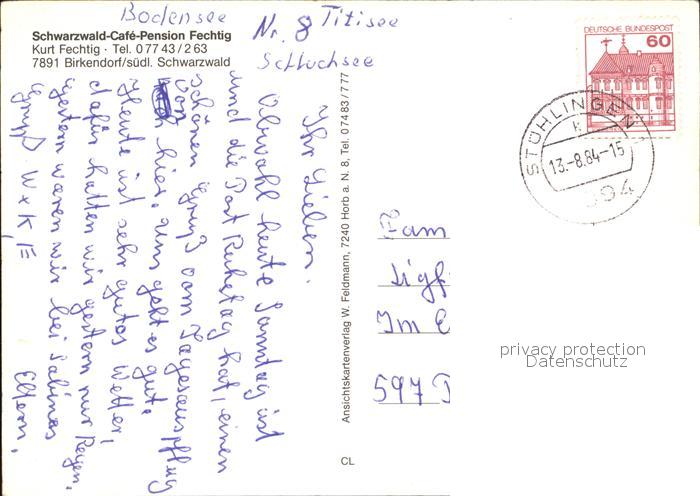 Bodensee
Nr. 8 Titisee
Schluchsee
Schwarzwald-Café-Pension Fechtig
Kurt Fechtig · Tel. 0 77 43 / 2 63
7891 Birkendorf/südl. Schwarzwald
Ihr Lieben.
Obwohl heute Sonntag ist
und die Post Ruhetag hat, einen
schönen Gruß vom
von hier. uns geht es gut.
Heute ist sehr gutes Wetter,
dafür hatten wir gestern nur Regen.
Gestern waren wir bei Sabinas
Eltern.
Gruß W + K
Ansichtskartenverlag W. Feldmann, 7240 Horb a. N. 8, Tel. 0 74 83 / 7 77
CL
DEUTSCHE BUNDESPOST
60
STÜHLINGEN 1
13.-8.84-15
Fam
Im E
597
privacy protection
Datenschutz